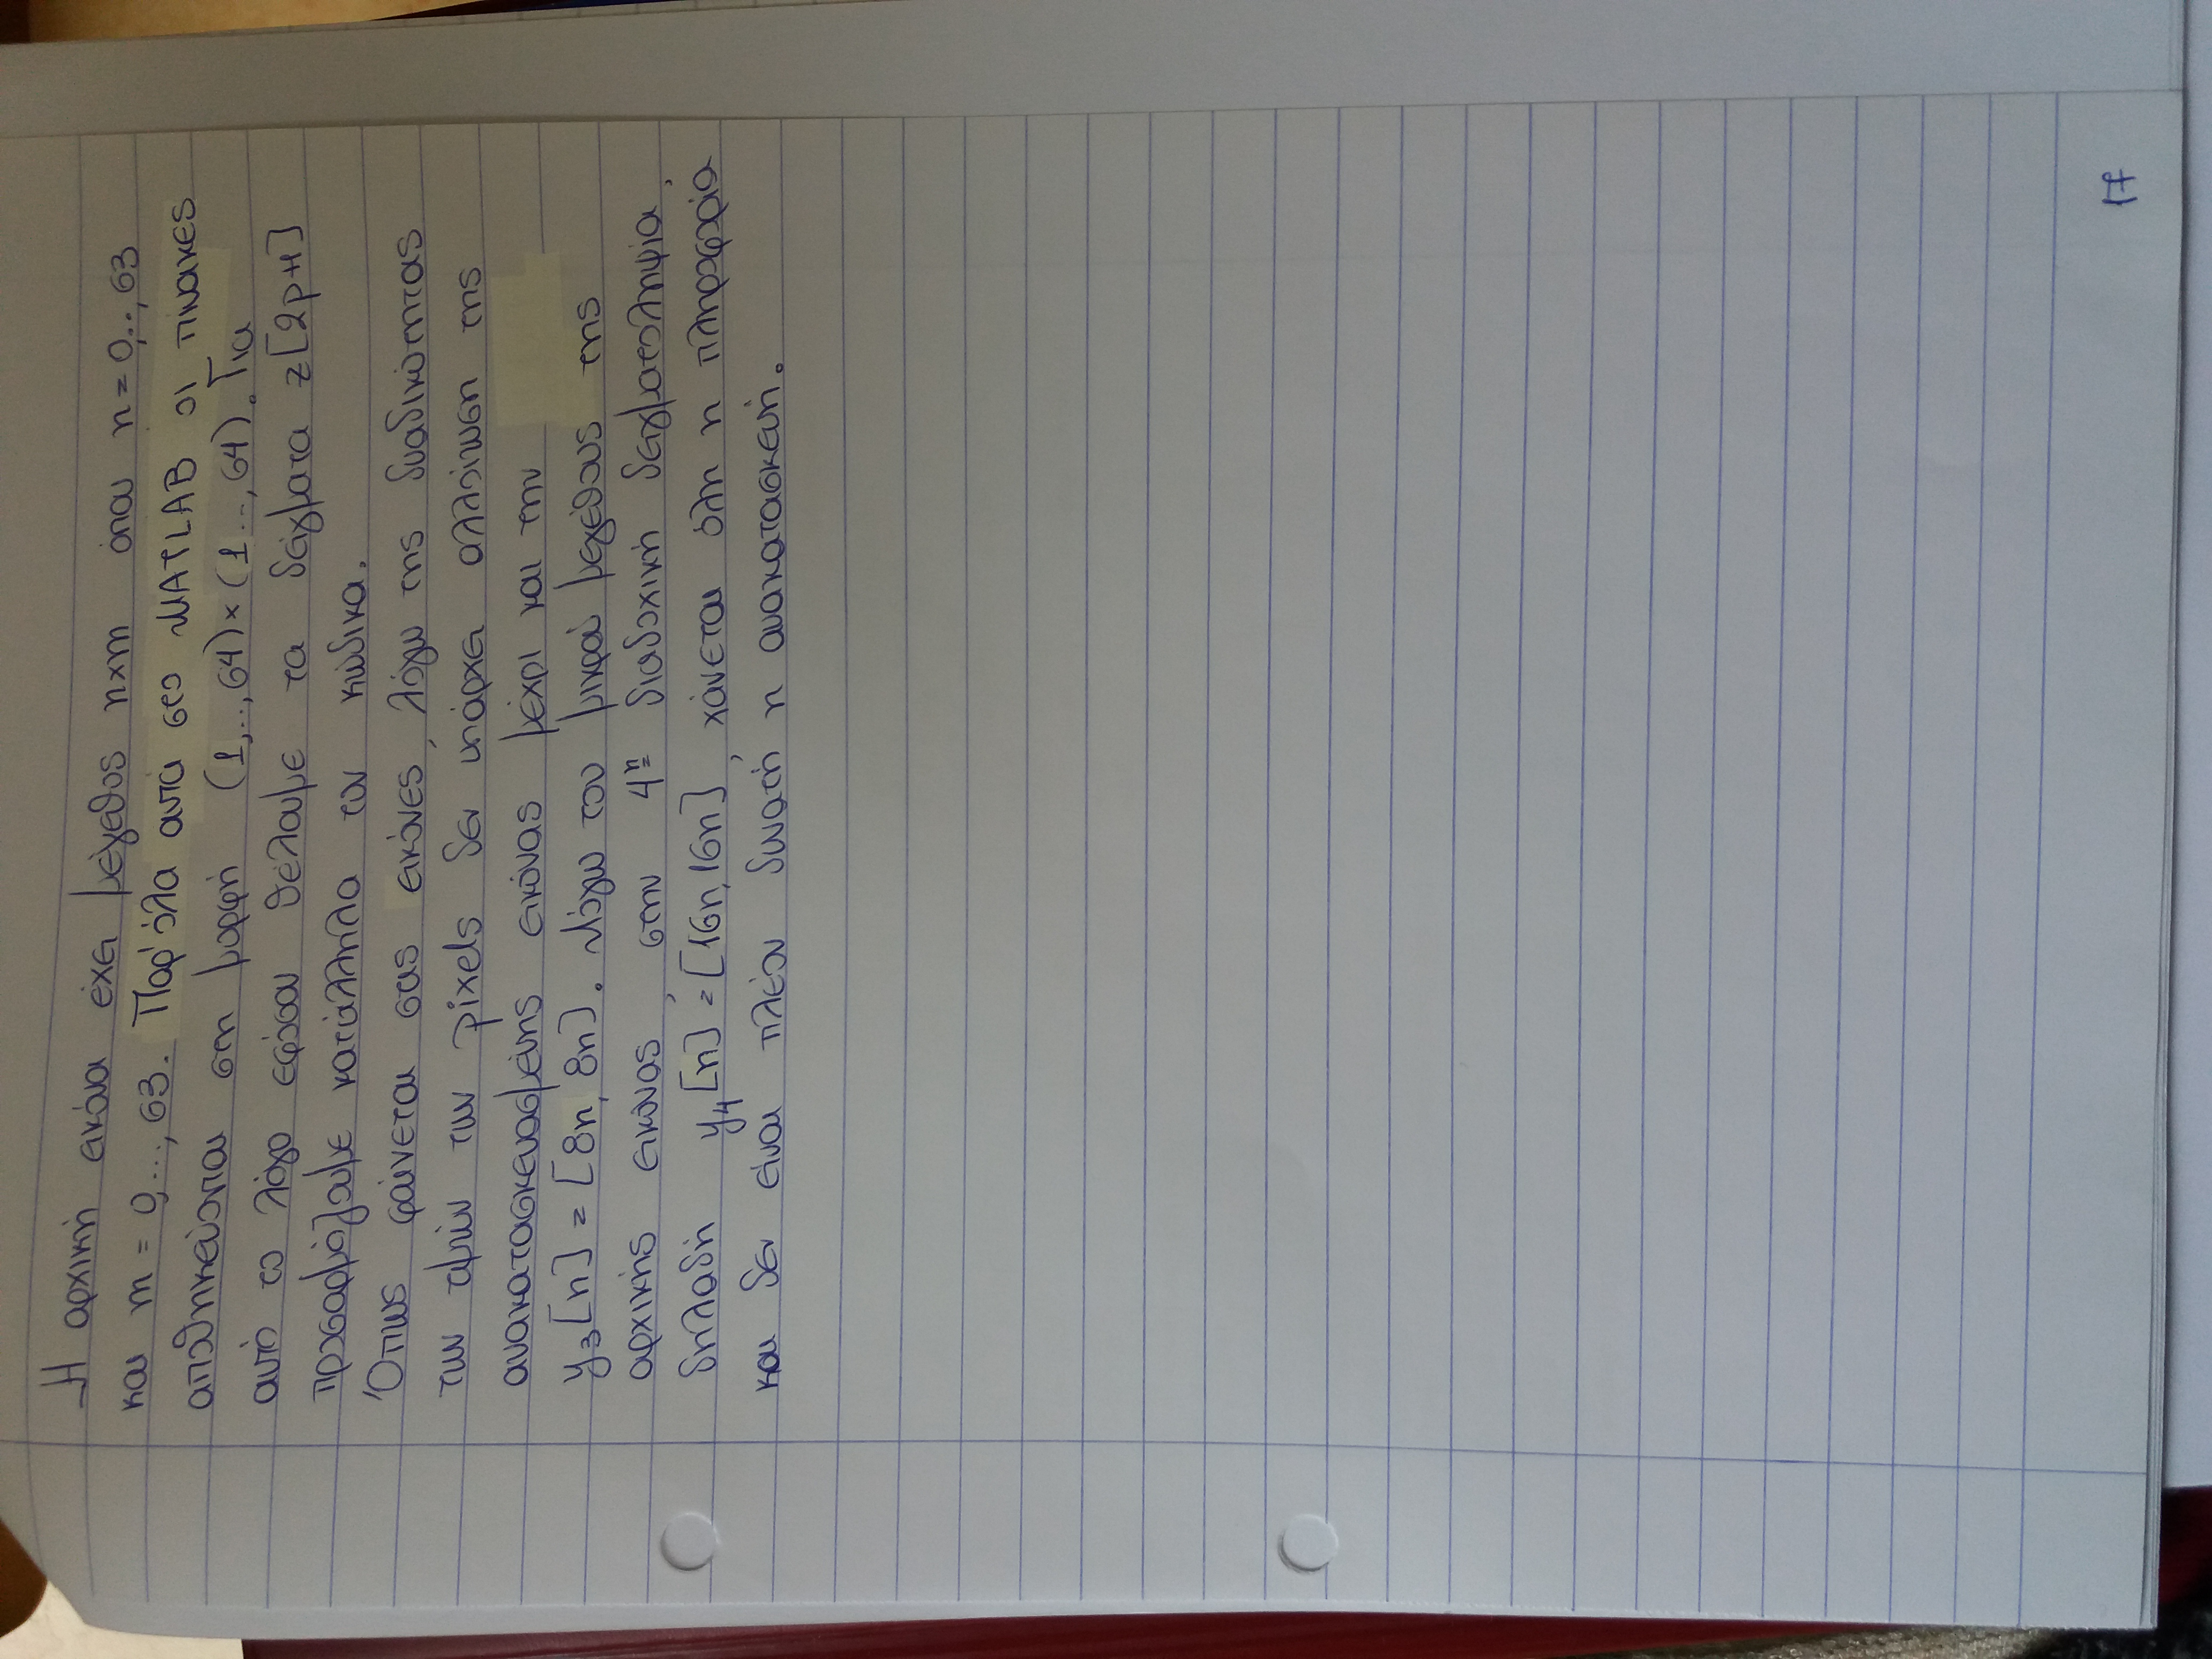 Η αρχική εικόνα έχει μέγεθος n×m όπου n = 0,..,63
και m = 0,...,63. Παρ'όλα αυτά στο MATLAB οι πίνακες
αποθηκεύονται στη μορφή (1,..,64)×(1..,64). Για
αυτό το λόγο εφόσον θέλουμε τα δείγματα z[2p+1]
προσαρμόζουμε κατάλληλα τον κώδικα.
Όπως φαίνεται στις εικόνες, λόγω της δυαδικότητας
των τιμών των pixels δεν υπάρχει αλλοίωση της
ανακατασκευασμένης εικόνας μέχρι και την
y₃[n] = [8n, 8n]. Λόγω του μικρού μεγέθους της
αρχικής εικόνας, στην 4η διαδοχική δειγματοληψία,
δηλαδή y₄[n] = [16n,16n], χάνεται όλη η πληροφορία
και δεν είναι πλέον δυνατή η ανακατασκευή.
17